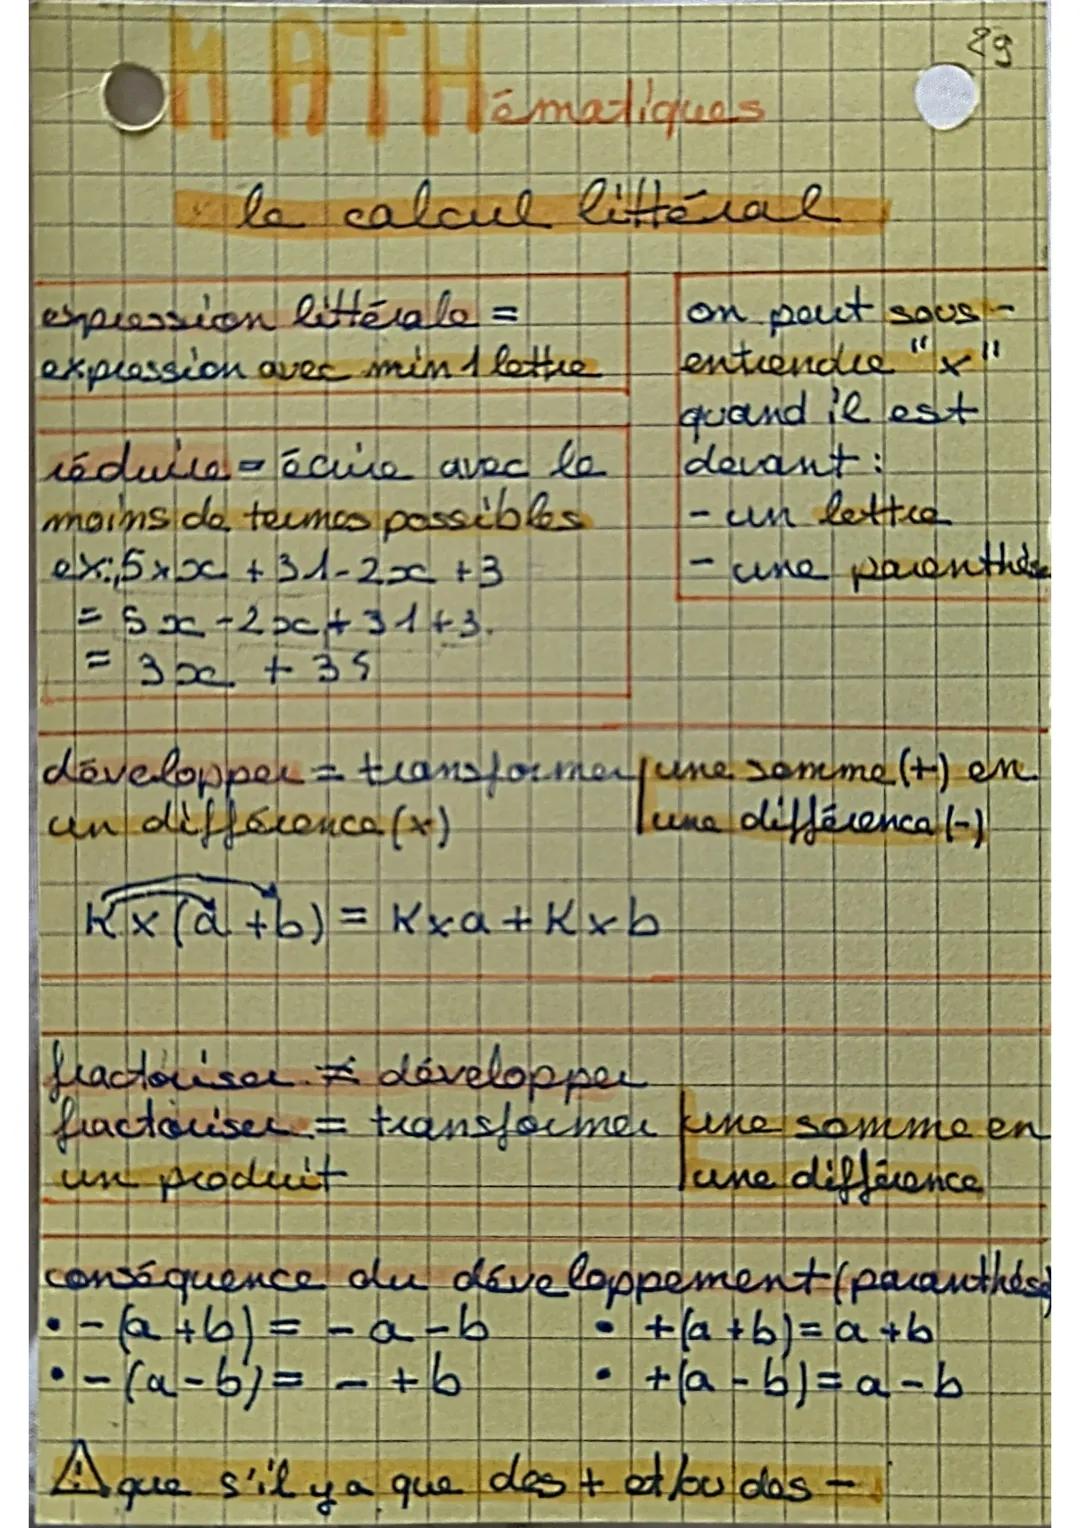 29
MATHématiques
le calcul littéral
expression littérale =
expression avec min 1 lettre
on peut sous-
entendre "x"
quand il est
devant :
- un lettre
- une parenthèse
réduire = écrire avec le
moins de termes possibles
ex: 5 x x + 31 - 2x + 3
= 5x - 2x + 31 + 3.
= 3x + 35
développer = transformer une somme (+) en
un différence (x) une différence (-)
K x (a + b) = K x a + K x b
fractoriser ≠ développer
fractoriser = transformer une somme en
un produit une différence
conséquence du développement (paranthèse)
• - (a + b) = - a - b
• + (a + b) = a + b
• - (a - b) = - + b
• + (a - b) = a - b
⚠ que s'il y a que des + et/ou des -